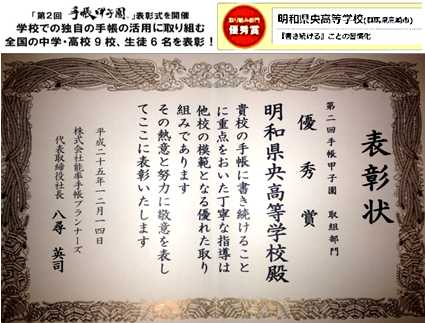 「第2回 手帳甲子園。」表彰式を開催
学校での独自の手帳の活用に取り組む
全国の中学・高校9校、生徒6名を表彰！
取り組み部門
優秀賞
明和県央高等学校(群馬県高崎市)
『書き続ける』ことの習慣化
表彰状
第二回手帳甲子園 取組部門
優秀賞
明和県央高等学校殿
貴校の手帳に書き続けること
に重点をおいた丁寧な指導は
他校の模範となる優れた取り
組みであります
その熱意と努力に敬意を表し
てここに表彰いたします
平成二十五年一二月一四日
株式会社能率手帳プランナーズ
代表取締役社長 八尋 英司